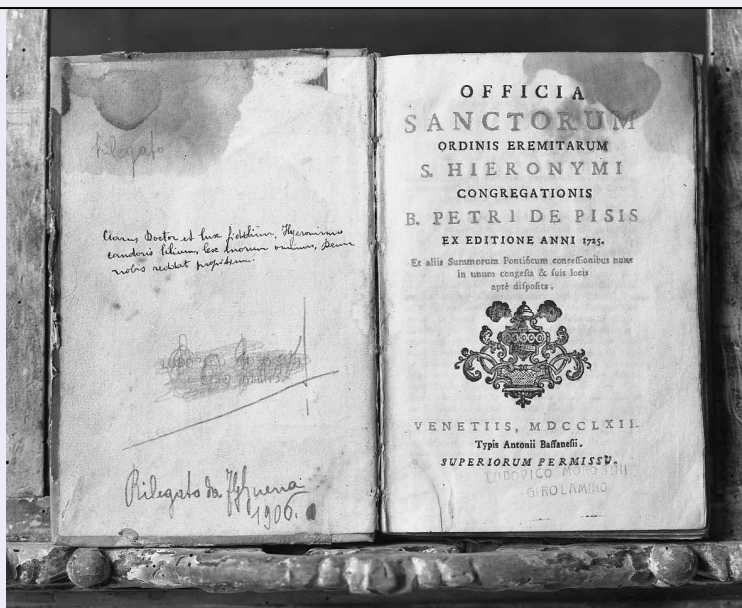 Rilegato
Clarus Doctor et lux fidelium, Hyeronimus
candoris lilium, lex morum omnium, Deum
nobis reddat propitium.
Rilegato da
1906.
OFFICIA
SANCTORUM
ORDINIS EREMITARUM
S. HIERONYMI
CONGREGATIONIS
B. PETRI DE PISIS
EX EDITIONE ANNI 1725.
Et aliis Summorum Pontificum concessionibus nunc
in unum congesta & suis locis
aptè disposita.
VENETIIS, MDCCLXII.
Typis Antonii Bassanesii.
SUPERIORUM PERMISSU.
LUDOVICO
GIROLAMINO